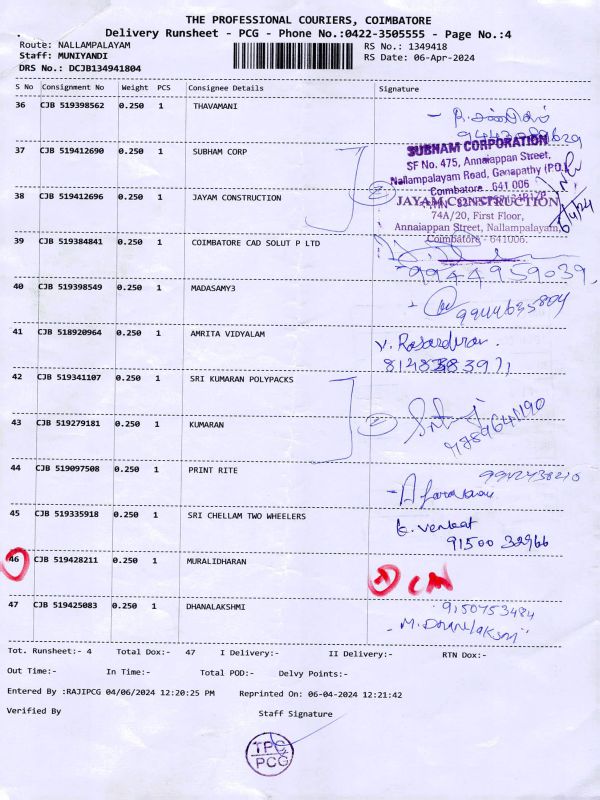 THE PROFESSIONAL COURIERS, COIMBATORE
Delivery Runsheet - PCG - Phone No.:0422-3505555 - Page No.:4
Route: NALLAMPALAYAM RS No.: 1349418
Staff: MUNIYANDI RS Date: 06-Apr-2024
DRS No.: DCJB134941804
S No Consignment No Weight PCS Consignee Details Signature
36 CJB 519398562 0.250 1 THAVAMANI
37 CJB 519412690 0.250 1 SUBHAM CORP
SUBHAM CORPORATION
SF No. 475, Annaiappan Street,
Nallampalayam Road, Ganapathy (P.O.)
Coimbatore - 641 006
38 CJB 519412696 0.250 1 JAYAM CONSTRUCTION
JAYAM CONSTRUCTION
74A/20, First Floor,
Annaiappan Street, Nallampalayam,
Coimbatore - 641006.
39 CJB 519384841 0.250 1 COIMBATORE CAD SOLUT P LTD
9944959039
40 CJB 519398549 0.250 1 MADASAMY3
41 CJB 518920964 0.250 1 AMRITA VIDYALAM
42 CJB 519341107 0.250 1 SRI KUMARAN POLYPACKS
43 CJB 519279181 0.250 1 KUMARAN
44 CJB 519097508 0.250 1 PRINT RITE
45 CJB 519335918 0.250 1 SRI CHELLAM TWO WHEELERS
G. Venkat
91500 32966
46 CJB 519428211 0.250 1 MURALIDHARAN
47 CJB 519425083 0.250 1 DHANALAKSHMI
9150753484
Tot. Runsheet:- 4 Total Dox:- 47 I Delivery:- II Delivery:- RTN Dox:-
Out Time:- In Time:- Total POD:- Delvy Points:-
Entered By :RAJIPCG 04/06/2024 12:20:25 PM Reprinted On: 06-04-2024 12:21:42
Verified By Staff Signature
TPC
PCG